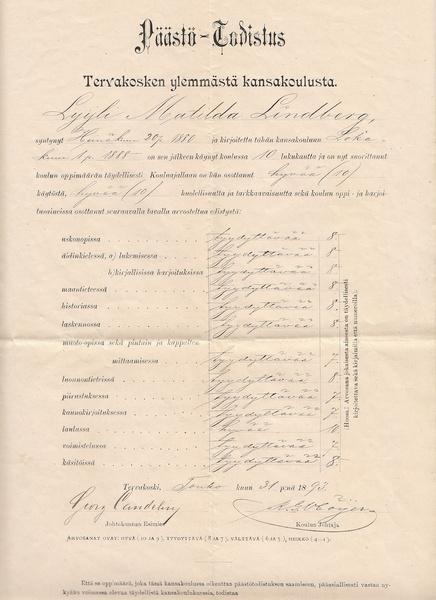 Päästö-Todistus
Tervakosken ylemmästä kansakoulusta.
Lyyli Matilda Lindberg,
syntynyt 20 p. 1880 ja kirjoitettu tähän kansakouluun Loka-
kuun 1 p. 1888 on sen jälkeen käynyt koulussa 10 lukukautta ja on nyt suorittanut
koulun oppimäärän täydellisesti. Kouluajallaan on hän osottanut hyvää (10)
käytöstä, hyvää (10) huolellisuutta ja tarkkaavaisuutta sekä koulun oppi- ja harjoi-
tusaineissa osottanut seuraavalla tavalla arvosteltua edistystä:
uskonopissa tyydyttävää 8.
äidinkielessä, a) lukemisessa tyydyttävää 8.
b) kirjallisissa harjoituksissa tyydyttävää 8.
maantieteessä tyydyttävää 8.
historiassa tyydyttävää 8.
laskennossa tyydyttävää 8.
muoto-opissa sekä pintain ja kappalten
mittaamisessa tyydyttävää 7.
luonnontieteissä tyydyttävää 8.
piirustuksessa tyydyttävää 7.
kaunokirjoituksessa tyydyttävää 7.
laulussa hyvää
voimistelussa tyydyttävää 7.
käsitöissä tyydyttävää 8.
(Huom.! Arvosana jokaisesta aineesta on täydellisesti
kirjoitettava sekä kirjaimilla että numeroilla).
Tervakoski, Touko kuun 31 p:nä 1893.
Georg Candelin
Johtokunnan Esimies
Koulun Johtaja
ARVOSANAT OVAT: HYVÄ (10 JA 9), TYYDYTTÄVÄ (8 JA 7), VÄLTTÄVÄ (6 JA 5), HEIKKO (4–1).
Että se oppimäärä, joka tässä kansakoulussa oikeuttaa päästötodistuksen saamiseen, pääasiallisesti vastaa ny-
kyään voimassa olevaa täydellistä kansakoulukurssia, todistaa